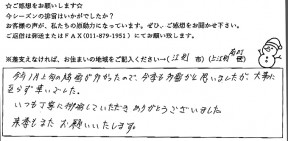 ☆ご感想をお願いします☆
今シーズンの排雪はいかがでしたか？
お客様の声が、私たちの原動力になっています。ぜひ、ご感想をお聞かせ下さい。
ご返信は郵送またはFAX(011-879-1951)にてお願い致します。
※差支えなければ、お住まいの地域をご記入ください→(江別 市)(上江別 町)
今年1月上旬の降雪が多かったので、今季も多雪かと思いましたが、大事に
至らず幸いでした。
いつも丁寧に排雪していただき ありがとうございました。
来季もまた お願いいたします。